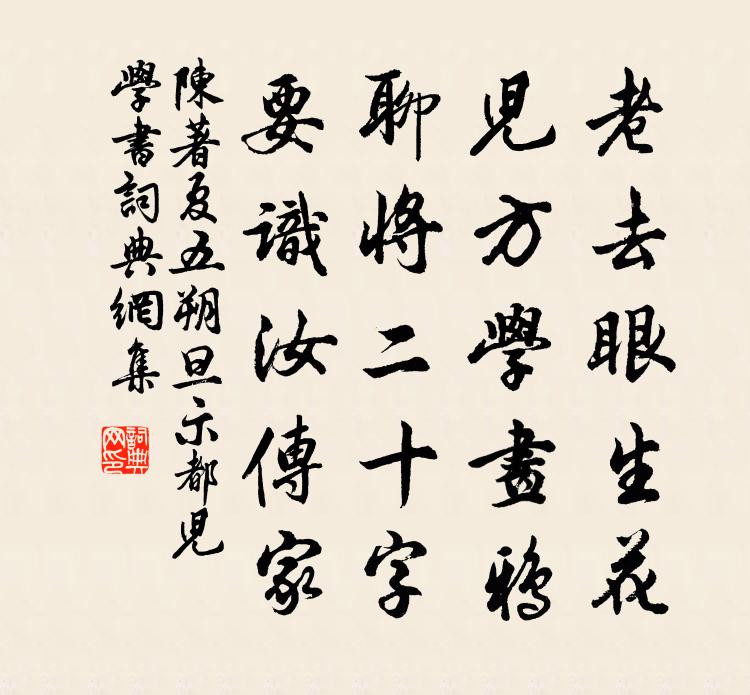 老去眼生花
兒方學畫鴉
聊將二十字
要識汝傳家
陳著夏五朔旦示都兒
學書詞典網集
詞典
网印